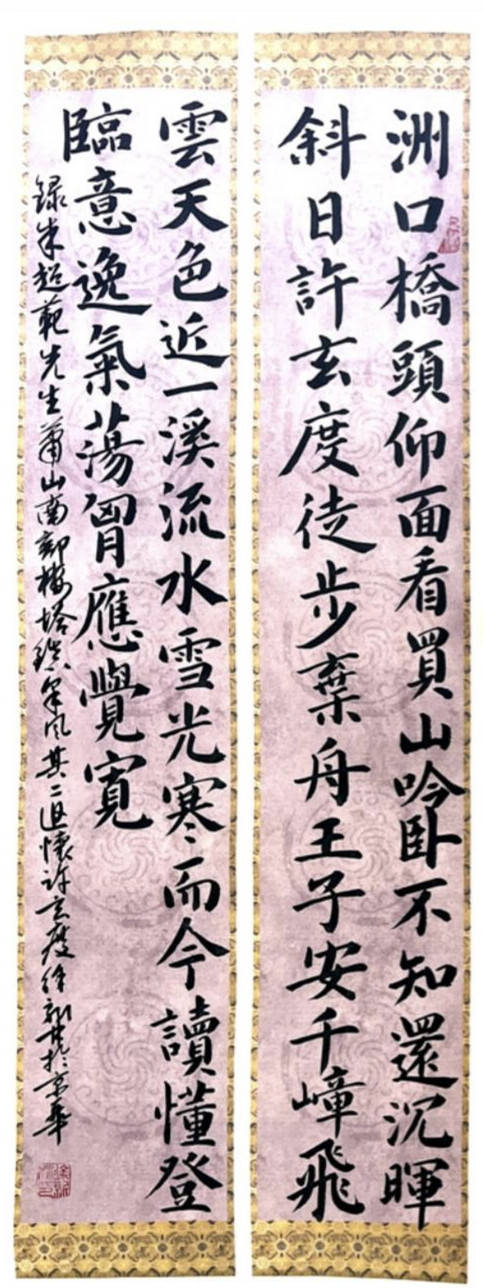 洲口橋頭仰面看買山吟臥不知還沉暉
斜日許玄度徒步棄舟王子安千嶂飛
雲天色近一溪流水雪光寒而今讀懂登
臨意逸氣蕩胷應覺寬
録朱超範先生蕭山南部樓塔鎮采風其二追懷許玄度徐於京華